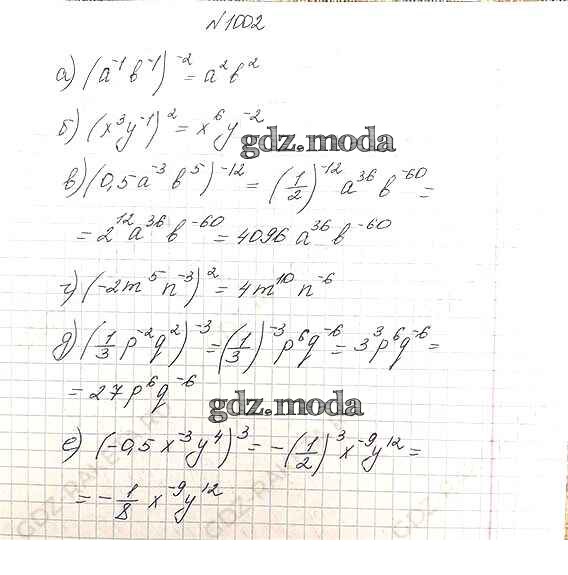 №1002
а) (a⁻¹b⁻¹)⁻² = a²b²
б) (x³y⁻¹)² = x⁶y⁻²
gdz.moda
в) (0,5a⁻³b⁵)⁻¹² = (1/2)⁻¹² a³⁶ b⁻⁶⁰ =
= 2¹²a³⁶b⁻⁶⁰ = 4096 a³⁶ b⁻⁶⁰
г) (-2m⁵n⁻³)² = 4m¹⁰n⁻⁶
д) (1/3 p⁻²q²)⁻³ = (1/3)⁻³p⁶q⁻⁶ = 3³p⁶q⁻⁶ =
= 27p⁶q⁻⁶
gdz.moda
е) (-0,5x⁻³y⁴)³ = -(1/2)³x⁻⁹y¹² =
= -1/8 x⁻⁹y¹²